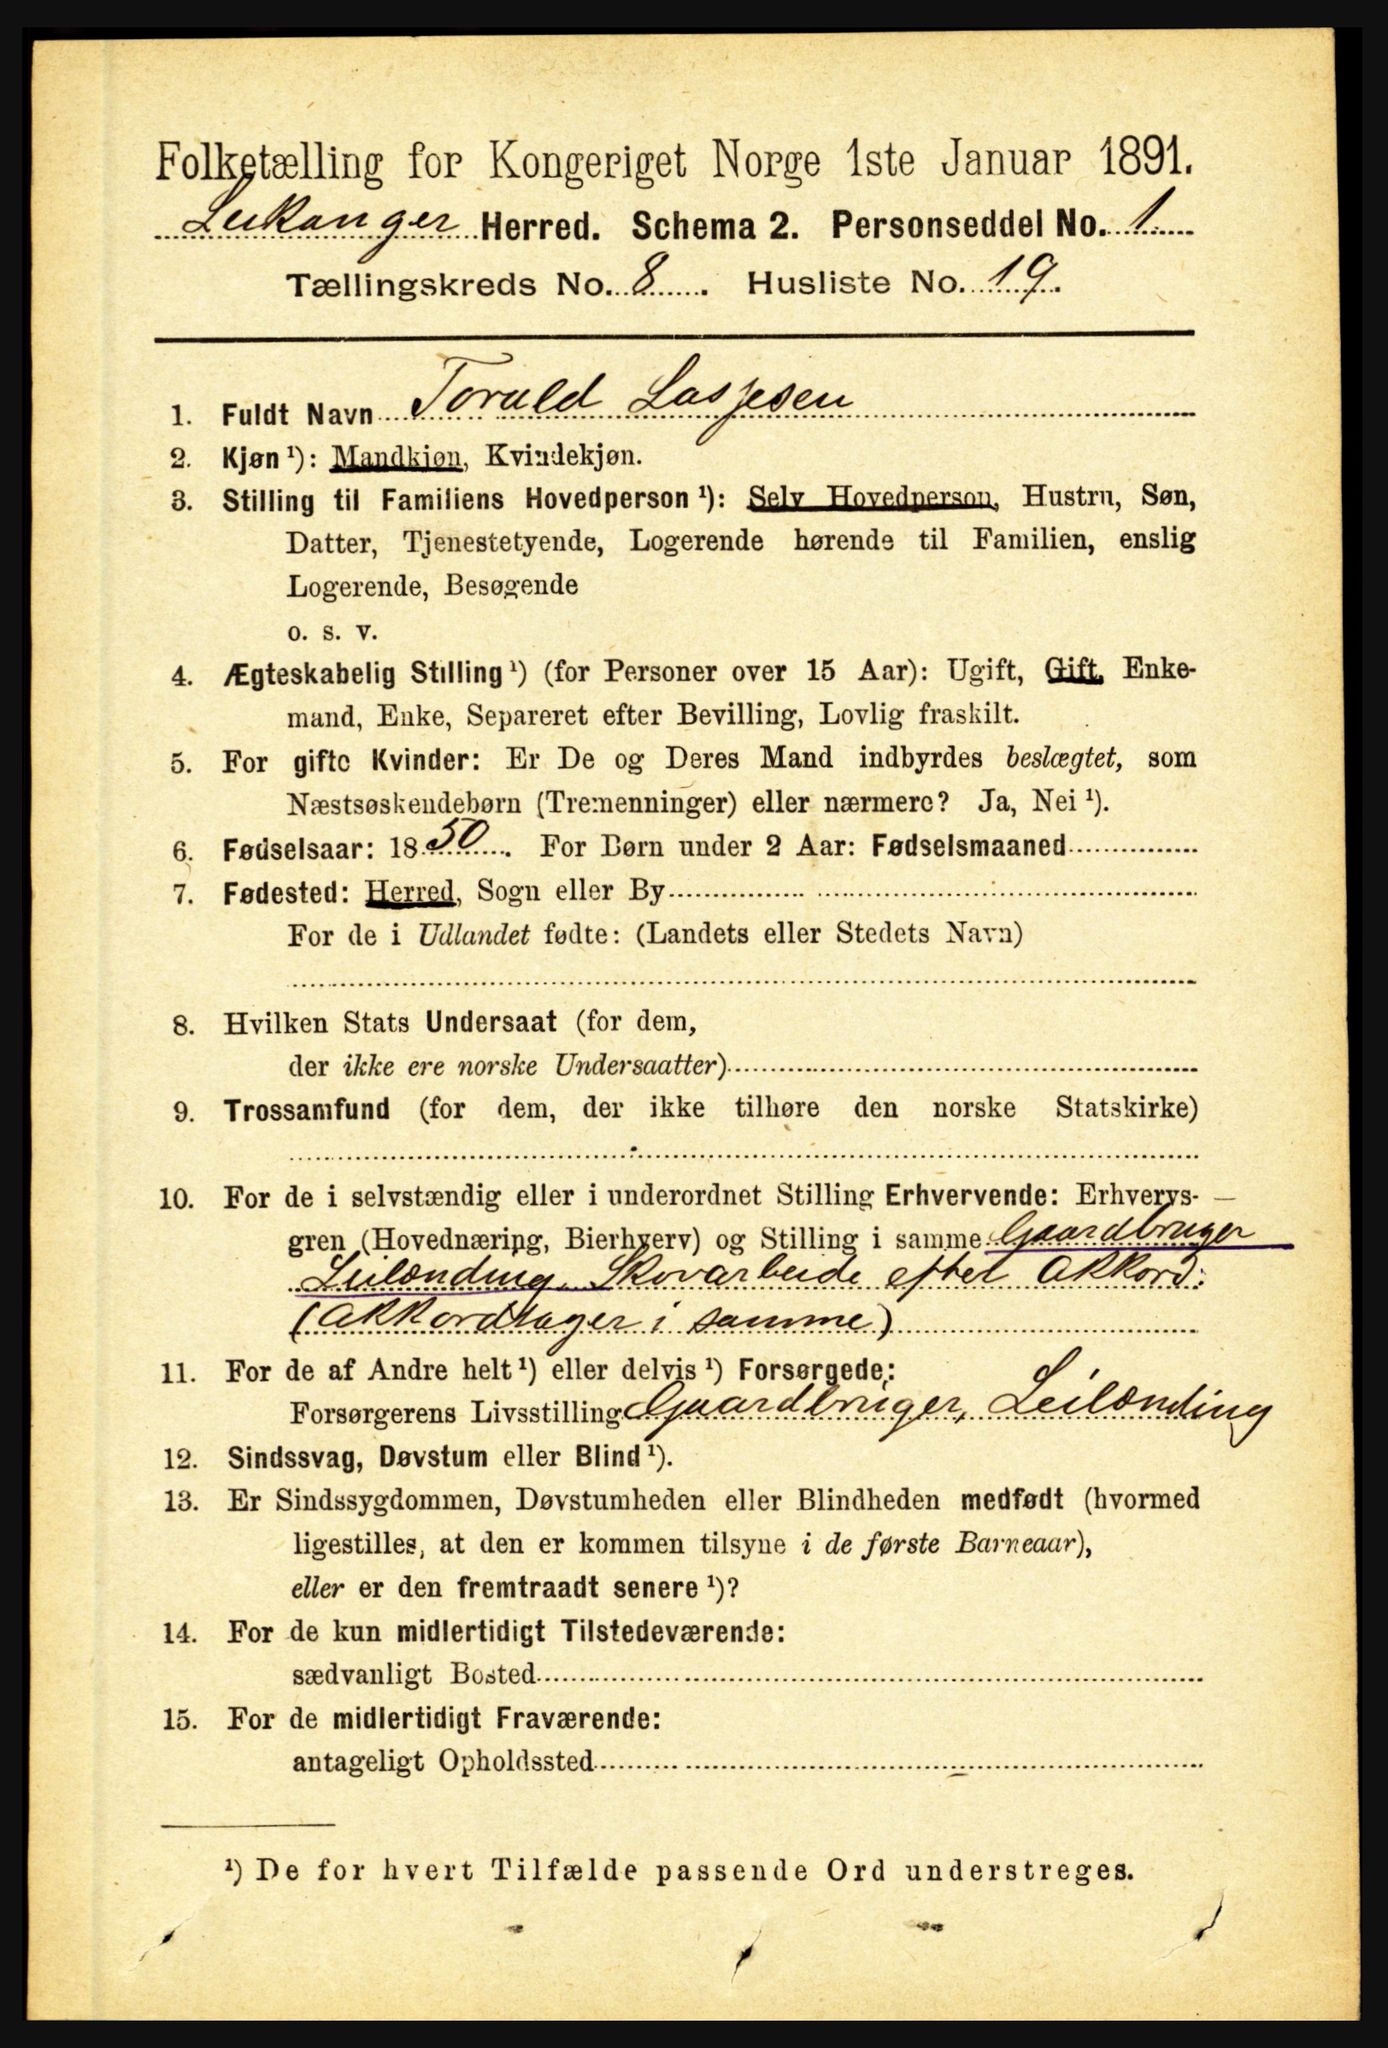 Folketælling for Kongeriget Norge 1ste Januar 1891.
Leikanger Herred. Schema 2. Personseddel No. 1
Tællingskreds No. 8. Husliste No. 19.
1. Fuldt Navn Torald Lassesen
2. Kjøn ¹): Mandkjøn, Kvindekjøn.
3. Stilling til Familiens Hovedperson ¹): Selv Hovedperson, Hustru, Søn,
Datter, Tjenestetyende, Logerende hørende til Familien, enslig
Logerende, Besøgende
o. s. v.
4. Ægteskabelig Stilling ¹) (for Personer over 15 Aar): Ugift, Gift, Enke-
mand, Enke, Separeret efter Bevilling, Lovlig fraskilt.
5. For gifte Kvinder: Er De og Deres Mand indbyrdes beslægtet, som
Næstsøskendebørn (Tremenninger) eller nærmere? Ja, Nei ¹).
6. Fødselsaar: 1850. For Børn under 2 Aar: Fødselsmaaned
7. Fødested: Herred, Sogn eller By
For de i Udlandet fødte: (Landets eller Stedets Navn)
8. Hvilken Stats Undersaat (for dem,
der ikke ere norske Undersaatter)
9. Trossamfund (for dem, der ikke tilhøre den norske Statskirke)
10. For de i selvstændig eller i underordnet Stilling Erhvervende: Erhvervs-
gren (Hovednæring, Bierhverv) og Stilling i samme Gaardbruger
Leilænding. Skovarbeide efter Akkord.
(Akkordtager i samme)
11. For de af Andre helt ¹) eller delvis ¹) Forsørgede:
Forsørgerens Livsstilling Gaardbruger, Leilænding
12. Sindssvag, Døvstum eller Blind ¹).
13. Er Sindssygdommen, Døvstumheden eller Blindheden medfødt (hvormed
ligestilles, at den er kommen tilsyne i de første Barneaar),
eller er den fremtraadt senere ¹)?
14. For de kun midlertidigt Tilstedeværende:
sædvanligt Bosted
15. For de midlertidigt Fraværende:
antageligt Opholdssted
¹) De for hvert Tilfælde passende Ord understreges.